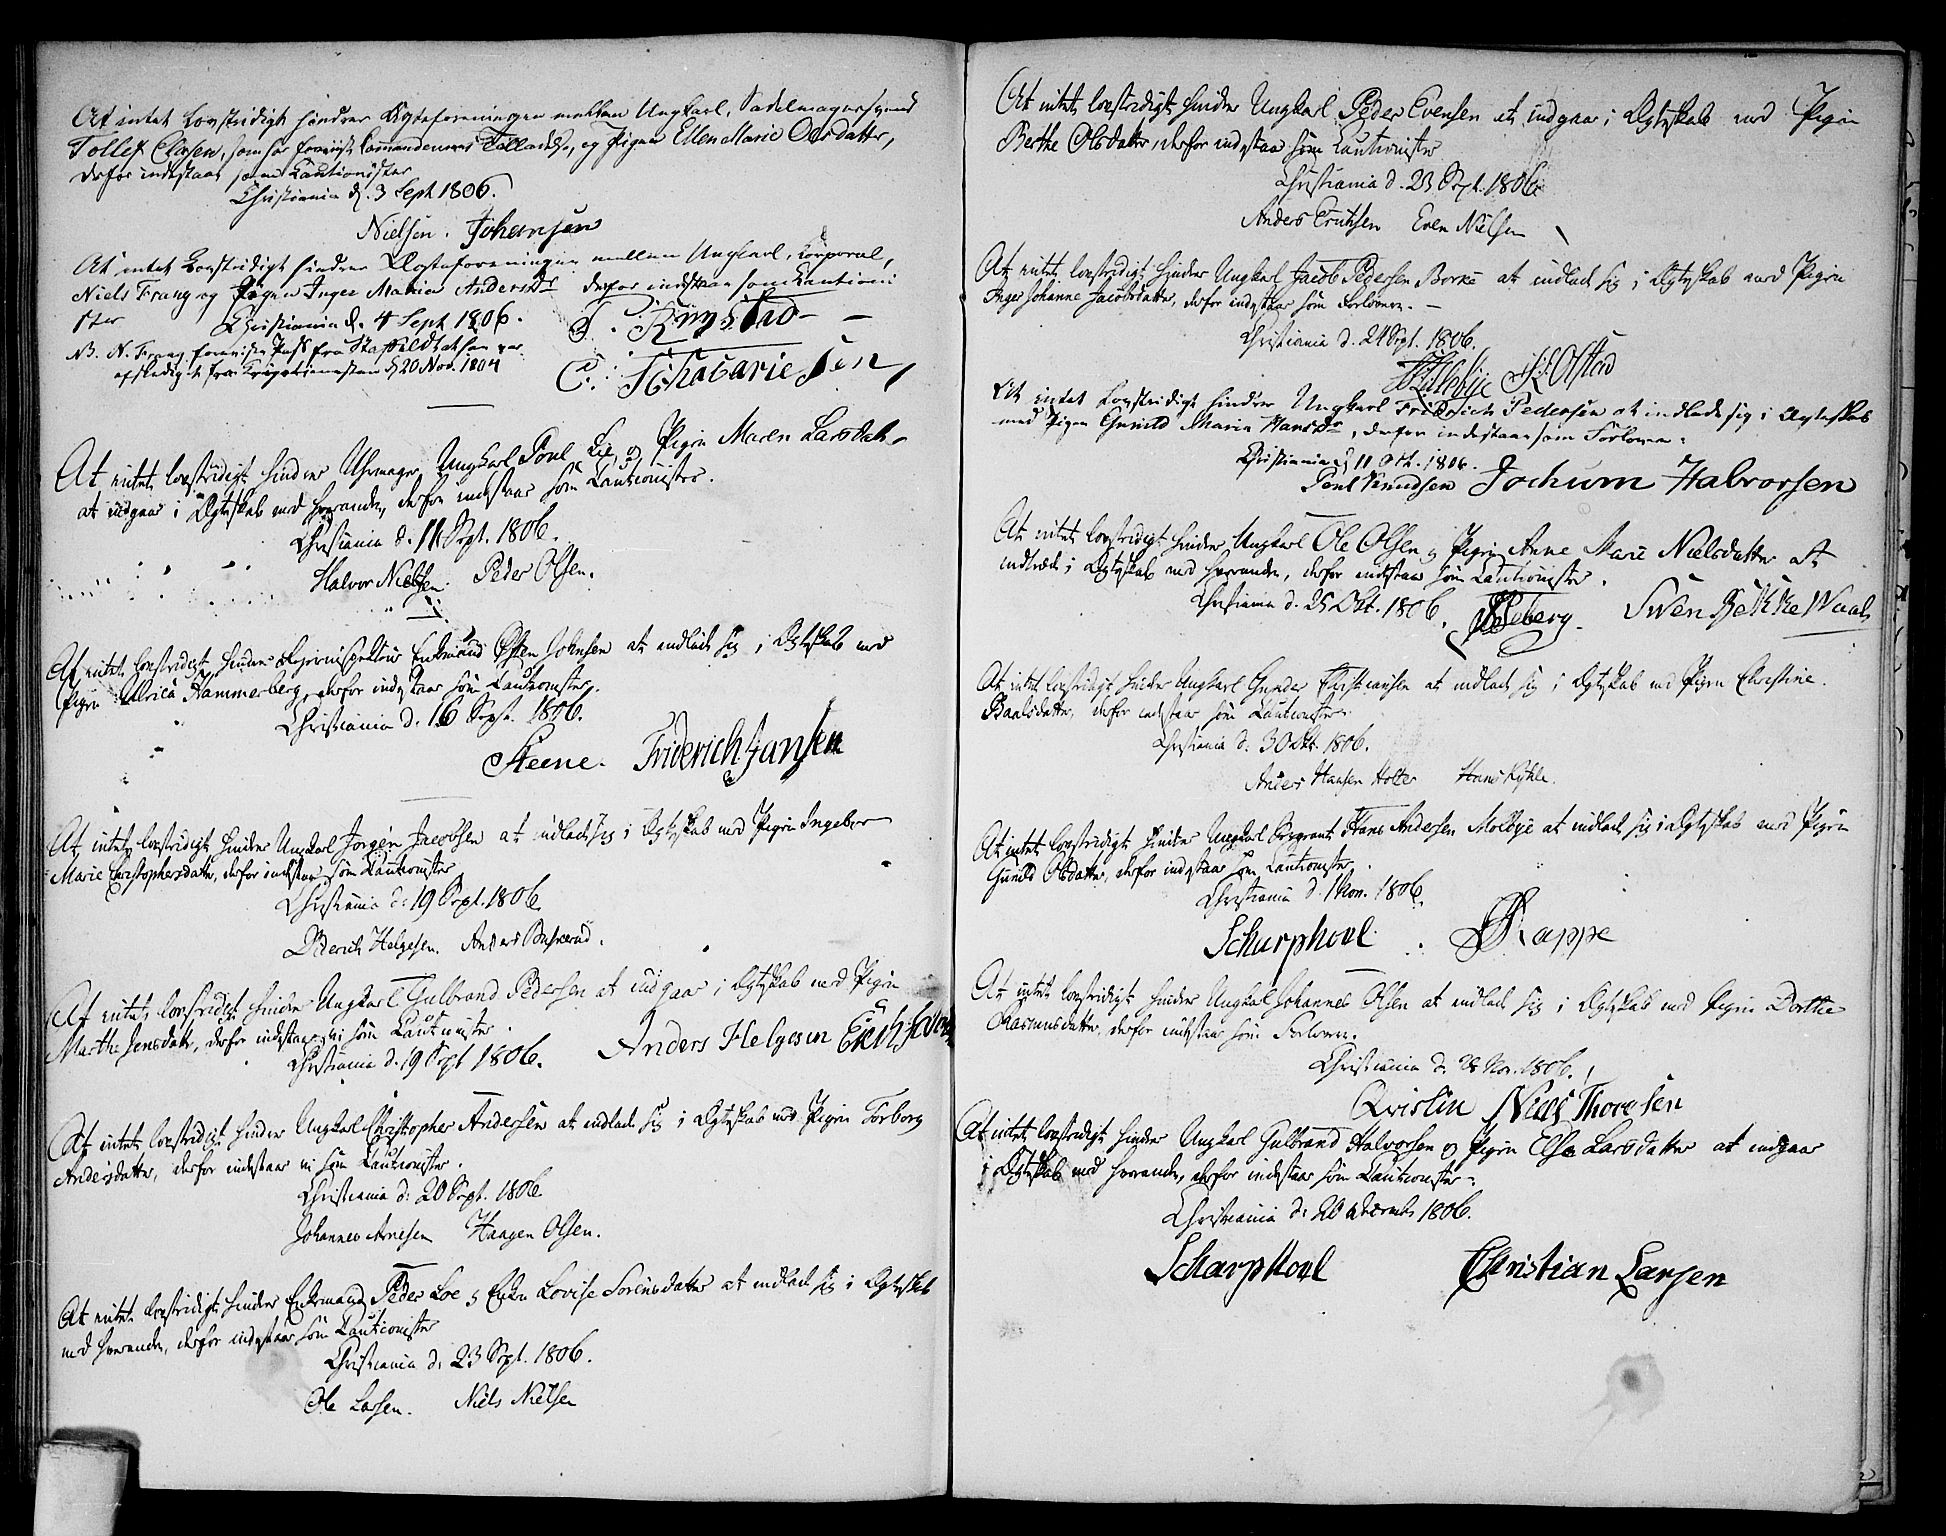 At intet lovstridigt hindrer Ægteforeningen mellem Ungkarl, Sadelmagersvend
Tollef Clasen, som har foreviist Commandeurens Tilladelse, og Pigen Ellen Marie Olsdatter,
derfor indestaar som Cautionister
Christiania d. 3 Sept 1806.
Nielsen. Johansen
At intet Lovstridigt hindrer Ægteforeningen mellem Ungkarl, Corporal,
Niels Frang og Pigen Inger Maria Andersdr derfor indestaar som Cautioni
ster
Christiania d. 4 Sept 1806.
NB. N. Frang foreviser Pass fra
afskediget fra d 20 Nov. 1804
C. Zachariesen,
At intet lovstridigt hinder Uhrmager, Ungkarl Poul Lie og Pigen Maren Larsdatr
at indgaae i Ægteskab med hverandre, derfor indestaar som Cautionister.
Christiania d. 11 Sept. 1806.
Halvor Nielsen. Peder Olsen.
At intet lovstridigt hinder Enkemand Østen Johnsen at indlade sig i Ægteskab med
Pigen Ulrica Hammerberg, derfor indestaar som Cautionister.
Christiania d. 16 Sept. 1806.
Steene. Friderich Jansen
At intet lovstridigt hinder Ungkarl Jørgen Jacobsen at indlade sig i Ægteskab med Pigen Ingebor
Marie Christophersdatter, derfor indestaar som Cautionister
Christiania d: 19 Sept. 1806.
Diderich Helgesen. Anders Buskerud.
At intet lovstridigt hinder Ungkarl Gulbrand Pedersen at indgaae i Ægteskab med Pigen
Marthe Jensdatter, derfor indestaar vi som Cautionister.
Christiania d. 19 Sept 1806.
Anders Helgesen
At intet lovstridigt hinder Ungkarl Christopher Andersen at indlade sig i Ægteskab med Pigen Torborg
Andersdatter, derfor indestaar vi som Cautionister.
Christiania d: 20 Sept. 1806
Johannes Arnesen Haagen Olsen.
At intet lovstridigt hinder Enkemand Peder Loe og Enken Lovise Sørensdatter at indlade sig i Ægteskab
med hverandre, derfor indestaar som Cautionister
Christiania d: 23 Sept. 1806.
Ole Larsen. Niels Nielsen
At intet lovstridigt hinder Ungkarl Peder Evensen at indgaae i Ægteskab med Pigen
Berthe Olsdatter, derfor indestaar som Cautionister
Christiania d. 23 Sept. 1806.
Anders Erichsen Even Nielsen
At intet lovstridigt hinder Ungkarl Jacob Pedersen Borke at indlade sig i Ægteskab med Pigen
Inger Johanne Jacobsdatter, derfor indestaar som Forlovere.
Christiania d. 24 Sept. 1806.
Olstad
At intet Lovstridigt hindrer Ungkarl Fridrich Pedersen at indlade sig i Ægteskab
med Pigen Gunild Maria Hansdr, derfor indestaar som Forlovere:
Christiania d 11 Oct. 1806.
Poul Knudsen Jochum Halvorsen
At intet lovstridigt hinder Ungkarl Ole Olsen og Pigen Anne Marie Nielsdatter at
indtræde i Ægteskab med hverandre, derfor indestaar som Cautionister.
Christiania d. 25 Oct. 1806.
Seeberg. Swen
At intet lovstridigt hinder Ungkarl Gunder Christiansen at indlade sig i Ægteskab med Pigen Christine
derfor indestaar som Cautionister.
Christiania d. 30 Oct. 1806.
Anders Hansen Holter Hans
At intet lovstridigt hinder Ungkarl Sergeant Hans Andersen Molbye at indlade sig i Ægteskab med Pigen
Gunild Olsdatter, derfor indestaar som Cautionister.
Christiania d. 1 Nov. 1806.
Scharphovl. Rappe
At intet lovstridigt hinder Ungkarl Johannes Olsen at indlade sig i Ægteskab med Pigen Dorthe
Rasmusdatter, derfor indestaar som Forlovere.
Christiania d: 28 Nov. 1806.
Qvislin Niels Thoresen
At intet lovstridigt hinder Ungkarl Gulbrand Halvorsen og Pigen Else Larsdatter at indgaae
i Ægteskab med hverandre, derfor indestaar som Cautionister:
Christiania d: 20 Decembr 1806.
Scharphovl Christian Larsen